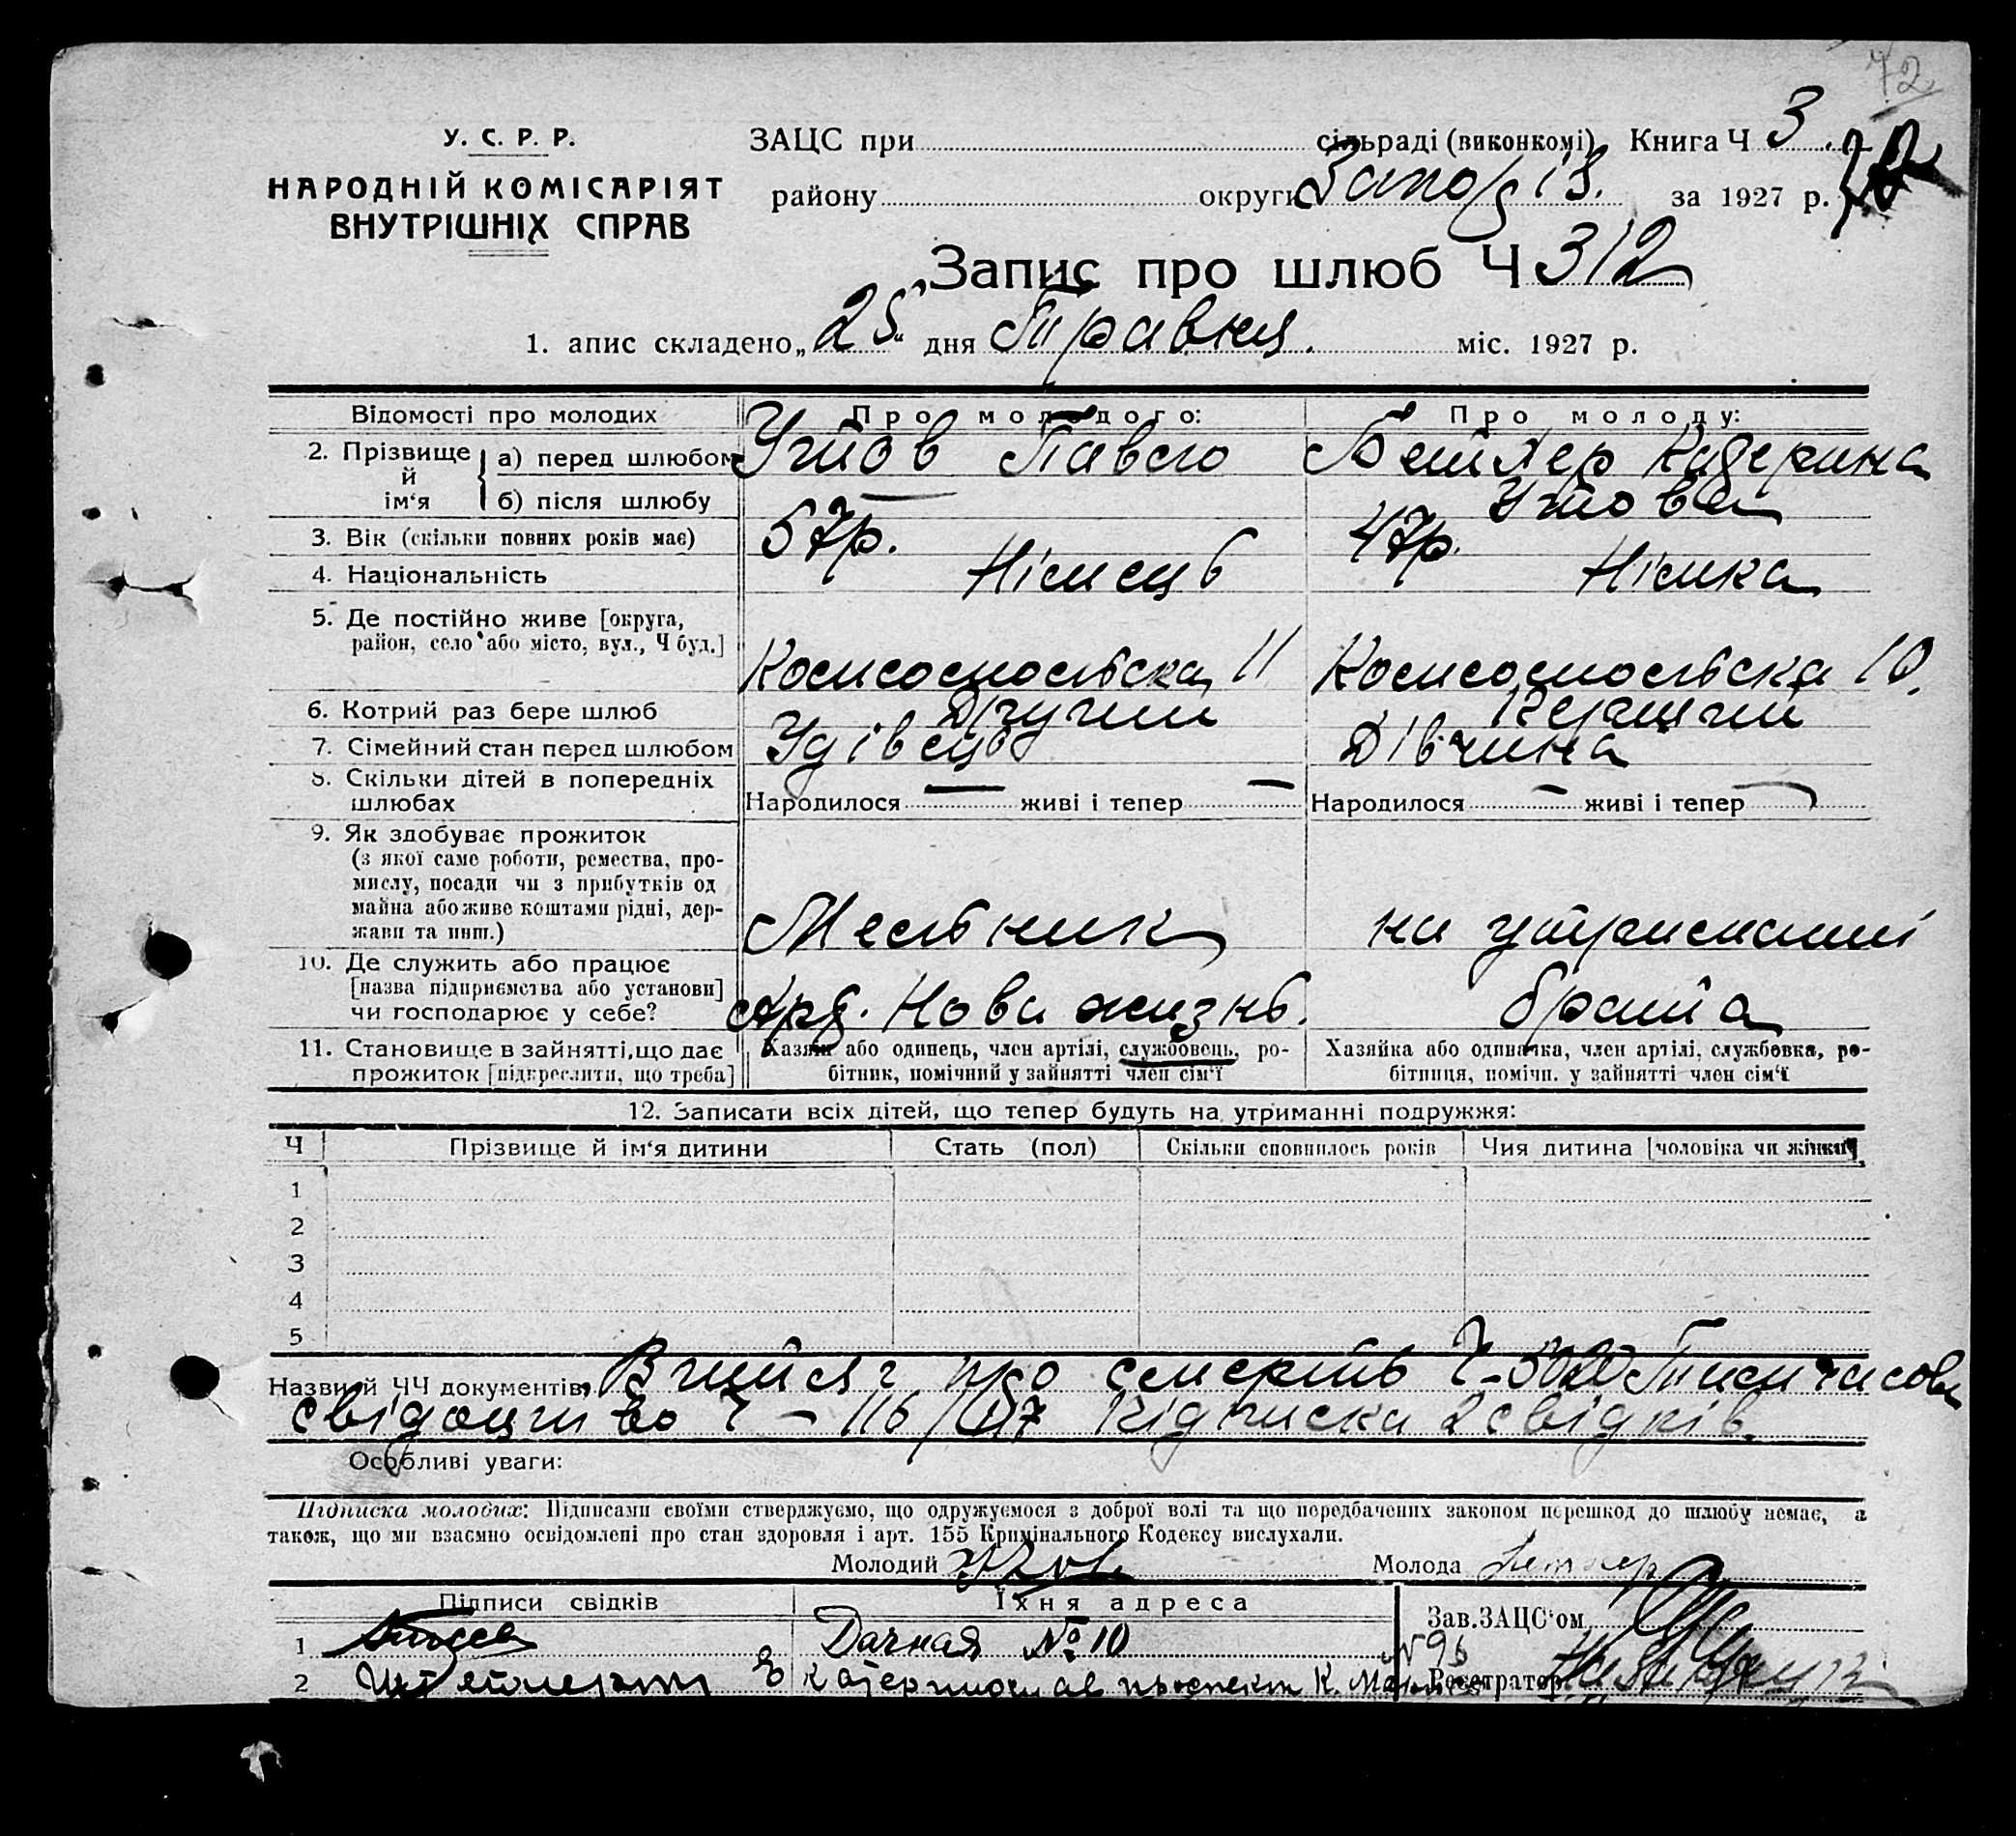 72
У. С. Р. Р.
НАРОДНІЙ КОМІСАРІЯТ
ВНУТРІШНІХ СПРАВ
ЗАЦС при сільраді (виконкомі) Книга Ч 3
району округи Запоріз. за 1927 р.
Запис про шлюб Ч 312
1. апис складено „25“ дня Травня. міс. 1927 р.
Відомості про молодих
Про молодого:
Про молоду:
2. Прізвище й ім‘я
а) перед шлюбом
Утов Павло
Бетхер Кадерина
б) після шлюбу
—
Утова
3. Вік (скільки повних років має)
57р.
47р.
4. Національність
Німець
Німка
5. Де постійно живе [округа,
район, село або місто, вул., Ч буд.]
Комсомольска 11
Комсомольска 10.
6. Котрий раз бере шлюб
Другий
Перший
7. Сімейний стан перед шлюбом
Удівець
Дівчина
8. Скільки дітей в попередніх
шлюбах
Народилося — живі і тепер —
Народилося — живі і тепер —
9. Як здобуває прожиток
(з якої саме роботи, ремества, про-
мислу, посади чи з прибутків од
майна або живе коштами рідні, дер-
жави та инш.)
Мельник
на утриманні
10. Де служить або працює
[назва підприємства або установи]
чи господарює у себе?
Нова жизнь.
брата
11. Становище в зайнятті, що дає
прожиток [підкреслити, що треба]
Хазяїн або одинець, член артілі, службовець, ро-
бітник, помічний у зайнятті член сім‘ї
Хазяйка або одиначка, член артілі, службовка, ро-
бітниця, помічн. у зайнятті член сім‘ї
12. Записати всіх дітей, що тепер будуть на утриманні подружжя:
Ч Прізвище й ім‘я дитини Стать (пол) Скільки сповнилось років Чия дитина [чоловіка чи жінки]
1
2
3
4
5
Назви й ЧЧ документів, Витяг про смерть Ч- Тимчасове
свідоцтво Ч – 116 Підписка 2 свідків.
Особливі уваги:
Підписка молодих: Підписами своїми стверджуємо, що одружуємося з доброї волі та що передбачених законом перешкод до шлюбу немає, а
також, що ми взаємно освідомлені про стан здоровля і арт. 155 Кримінального Кодексу вислухали.
Молодий
Молода Бетхер
Підписи свідків
Їхня адреса
Зав. ЗАЦС‘ом
1
Дачная № 10
2
проспект К. Маркса № 96
Реєстратор